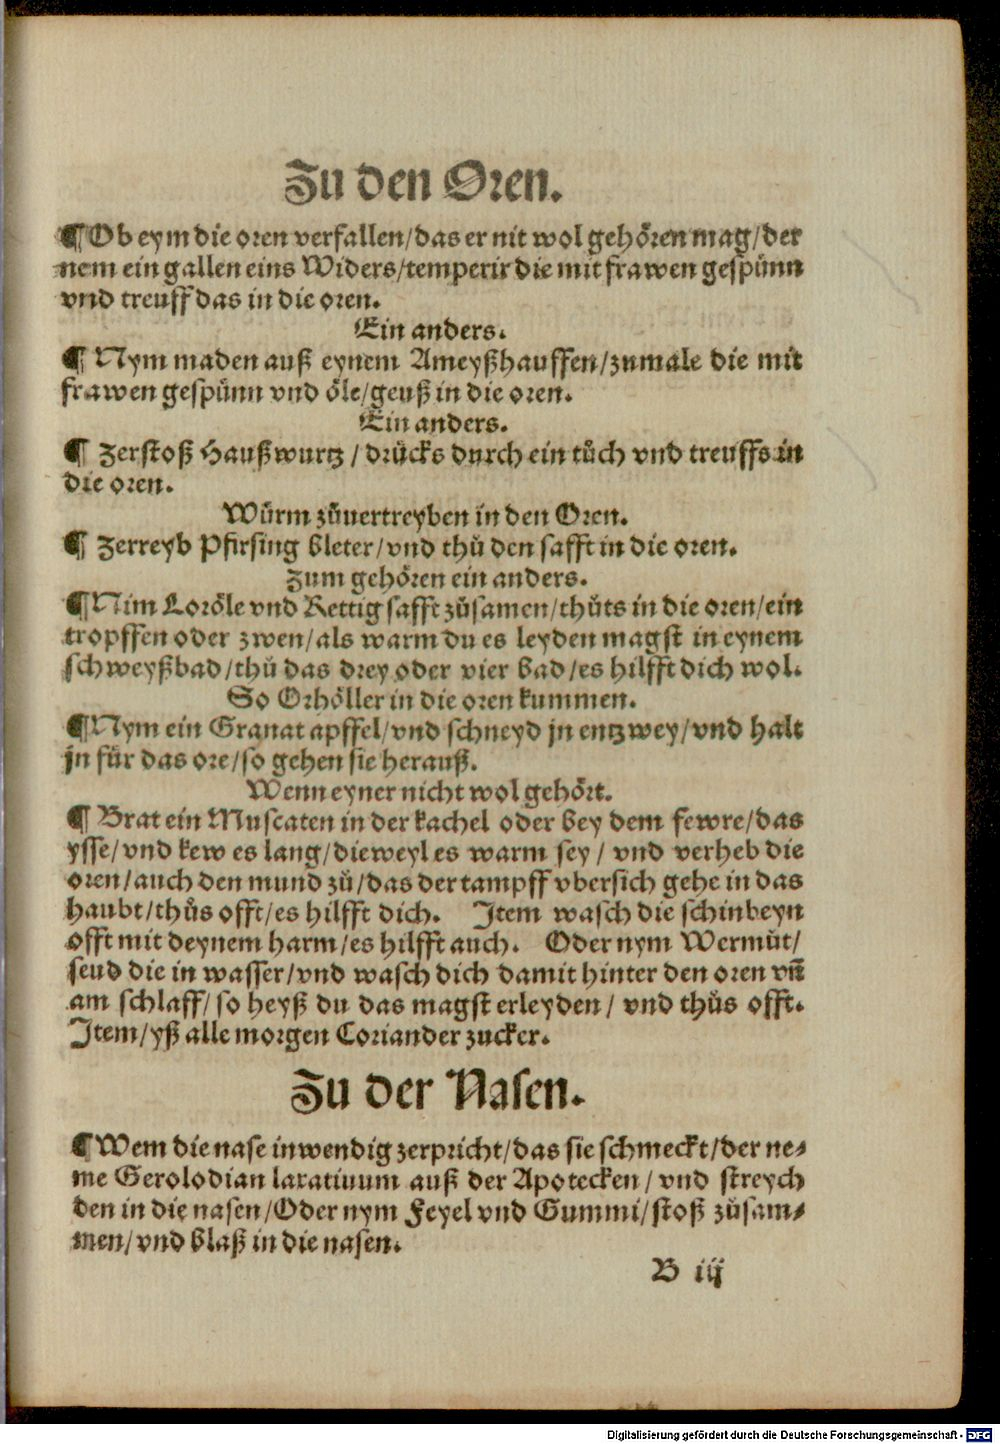 Zu den Oren.
¶ Ob eym die oren verfallen/das er nit wol gehören mag/der
nem ein gallen eins Widers/temperir die mit frawen gespünn
vnd treuff das in die oren.
Ein anders.
¶ Nym maden auß eynem Ameyßhauffen/zumale die mit
frawen gespünn vnd öle/geuß in die oren.
Ein anders.
¶ Zerstoß Haußwurtz / drücks durch ein tůch vnd treuffs in
die oren.
Würm zůuertreyben in den Oren.
¶ Zerreyb Pfirsing bleter/vnd thů den safft in die oren.
Zum gehören ein anders.
¶ Nim Loröle vnd Rettig safft zůsamen/thůts in die oren/ein
tropffen oder zwen/als warm du es leyden magst in eynem
schweyßbad/thů das drey oder vier bad/es hilfft dich wol.
So Orhöller in die oren kummen.
¶ Nym ein Granat apffel/vnd schneyd jn entzwey/vnd halt
jn für das ore/so gehen sie herauß.
Wenn eyner nicht wol gehört.
¶ Brat ein Muscaten in der kachel oder bey dem fewre/das
ysse/vnd kew es lang/dieweyl es warm sey / vnd verheb die
oren/auch den mund zů/das der tampff vbersich gehe in das
haubt/thůs offt/es hilfft dich. Item wasch die schinbeyn
offt mit deynem harm/es hilfft auch. Oder nym Wermůt/
seud die in wasser/vnd wasch dich damit hinter den oren vñ
am schlaff/so heyß du das magst erleyden / vnd thůs offt.
Item/yß alle morgen Coriander zucker.
Zu der Nasen.
¶ Wem die nase inwendig zerpricht/das sie schmeckt/der ne⸗
me Gerolodian laxatiuum auß der Apotecken / vnd streych
den in die nasen/Oder nym Feyel vnd Gummi/stoß zůsam⸗
men/vnd blaß in die nasen.
B iij
Digitalisierung gefördert durch die Deutsche Forschungsgemeinschaft - DFG